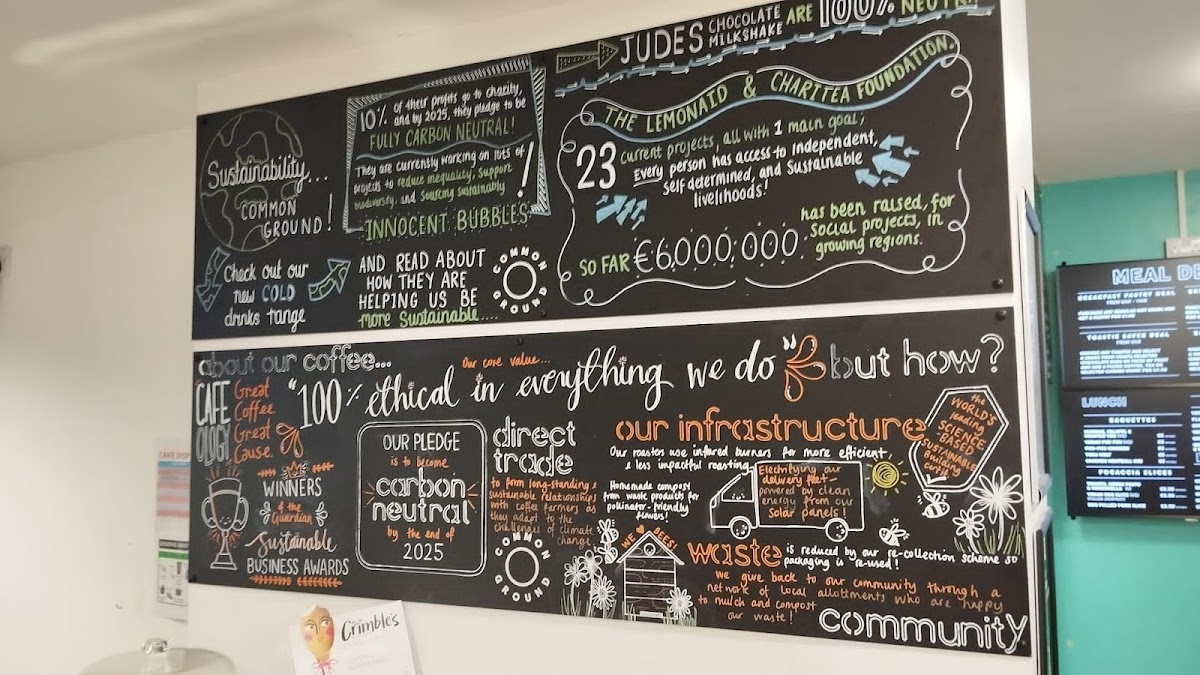 JUDES CHOCOLATE MILKSHAKE ARE 100% NEUTRA
Sustainability...
COMMON
GROUND!
10% of their profits go to charity,
and by 2025, they pledge to be
FULLY CARBON NEUTRAL!
They are currently working on lots of
projects to reduce inequality, support
biodiversity, and sourcing sustainably!
INNOCENT BUBBLES
THE LEMONAID & CHARITEA FOUNDATION.
23 current projects, all with 1 main goal;
Every person has access to independent,
self determined, and Sustainable
livelihoods!
SO FAR €6,000,000
has been raised, for
social projects, in
growing regions.
Check out our
new COLD
drinks range
AND READ ABOUT
HOW THEY ARE
HELPING US BE
more Sustainable....
COMMON
GROUND
about our coffee...
Our core value...
"100% ethical in everything we do"
but how?
CAFE
OLOGY
Great
Coffee
Great
Cause.
WINNERS
of the
Guardian
Sustainable
BUSINESS AWARDS
OUR PLEDGE
is to become
carbon
neutral
by the end of
2025
direct
trade
to form long-standing &
sustainable relationships
with coffee farmers as
they adapt to the
challenges of climate
change
COMMON
GROUND
our infrastructure
Our roasters use infared burners for more efficient,
& less impactful roasting
Homemade compost
from waste products for
pollinator-friendly
flowers!
Electrifying our
delivery fleet -
powered by clean
energy from our
solar panels!
the
WORLD'S
leading
SCIENCE
BASED
SUSTAINABLE
Building
certif
WE ♥ BEES!
waste is reduced by our re-collection scheme so
packaging is re-used!
we give back to our community through a
network of local allotments who are happy
to mulch and compost
our waste!
community
CAKE DISP
Crimble's
MEAL DE
BREAKFAST PASTRY DEAL
TOASTIE LOVER DEAL
LUNCH
BAGUETTES
FOCACCIA SLICES